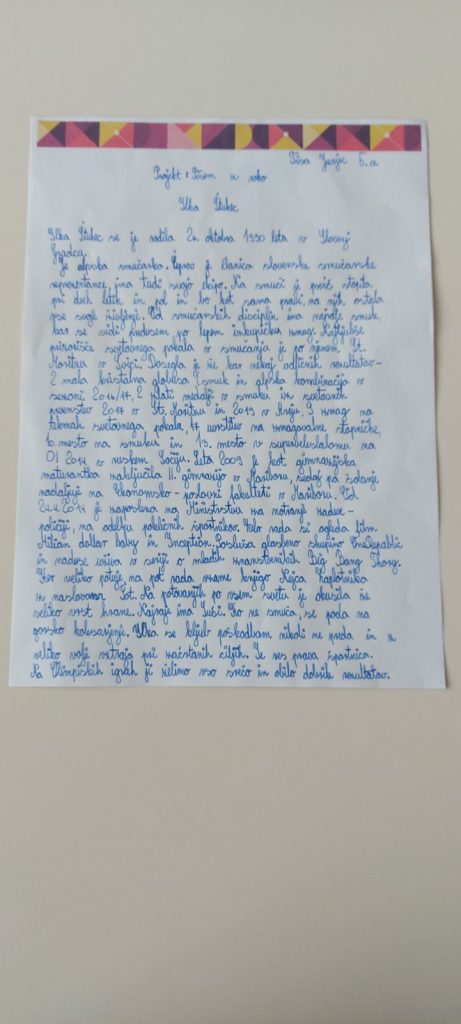 Jurjec 5.a
Projekt: Peresom v roko
Ilka Štuhec
Ilka Štuhec se je rodila 26. oktobra 1990 leta v Slovenj
Gradcu.
Je alpska smučarka. Čeprav je članica slovenske smučarske
reprezentance, ima tudi svojo ekipo. Na smuči je prvič stopila
pri dveh letih in pol in bo kot sama pravi, na njih ostala
vse svoje življenje. Od smučarskih disciplin ima najraje smuk,
kar se vidi predvsem po lepem izkupičku zmag. Najljubše
prizorišče svetovnega pokala v smučanju je po njenem St.
Moritzu v Švici. Dosegla je že kar nekaj odličnih rezultatov-
2 mala kristalna globusa (smuk in alpska kombinacija v
sezoni 2016/17, 2 zlati medalji v smuku iz svetovnih
prvenstev 2017 v St. Moritzu in 2019 v Åreju, 9 zmag na
tekmah svetovnega pokala, 17 uvrstitev na zmagovalne stopničke,
10. mesto na smuku in 13. mesto v superveleslalomu na
OI 2014 v ruskem Sočiju. Leta 2009 je kot gimnazijska
maturantka zaključila II. gimnazijo v Mariboru, sedaj pa šolanje
nadaljuje na Ekonomsko-poslovni fakulteti v Mariboru. Od
2014 je zaposlena na Ministrstvu za notranje zadeve-
policiji, na oddelku policijskih športnikov. Zelo rada si ogleda film
Milion dollar baby in Inception. Posluša glasbeno skupino OneRepublic
in nadvse uživa v seriji o mladih znanstvenikih Big Bang Theory.
Ker veliko potuje, na pot rada vzame knjigo Nejca Zaplotnika
z naslovom Pot. Na potovanjih po vsem svetu je okusila že
veliko vrst hrane. Najraje ima suši. Ko ne smuča, se poda na
gorsko kolesarjenje. Ilka se kljub poškodbam nikoli ne preda in z
veliko volje vztraja pri začrtanih ciljih. Je res prava športnica.
Na Olimpijskih igrah ji želimo vso srečo in obilo dobrih rezultatov.